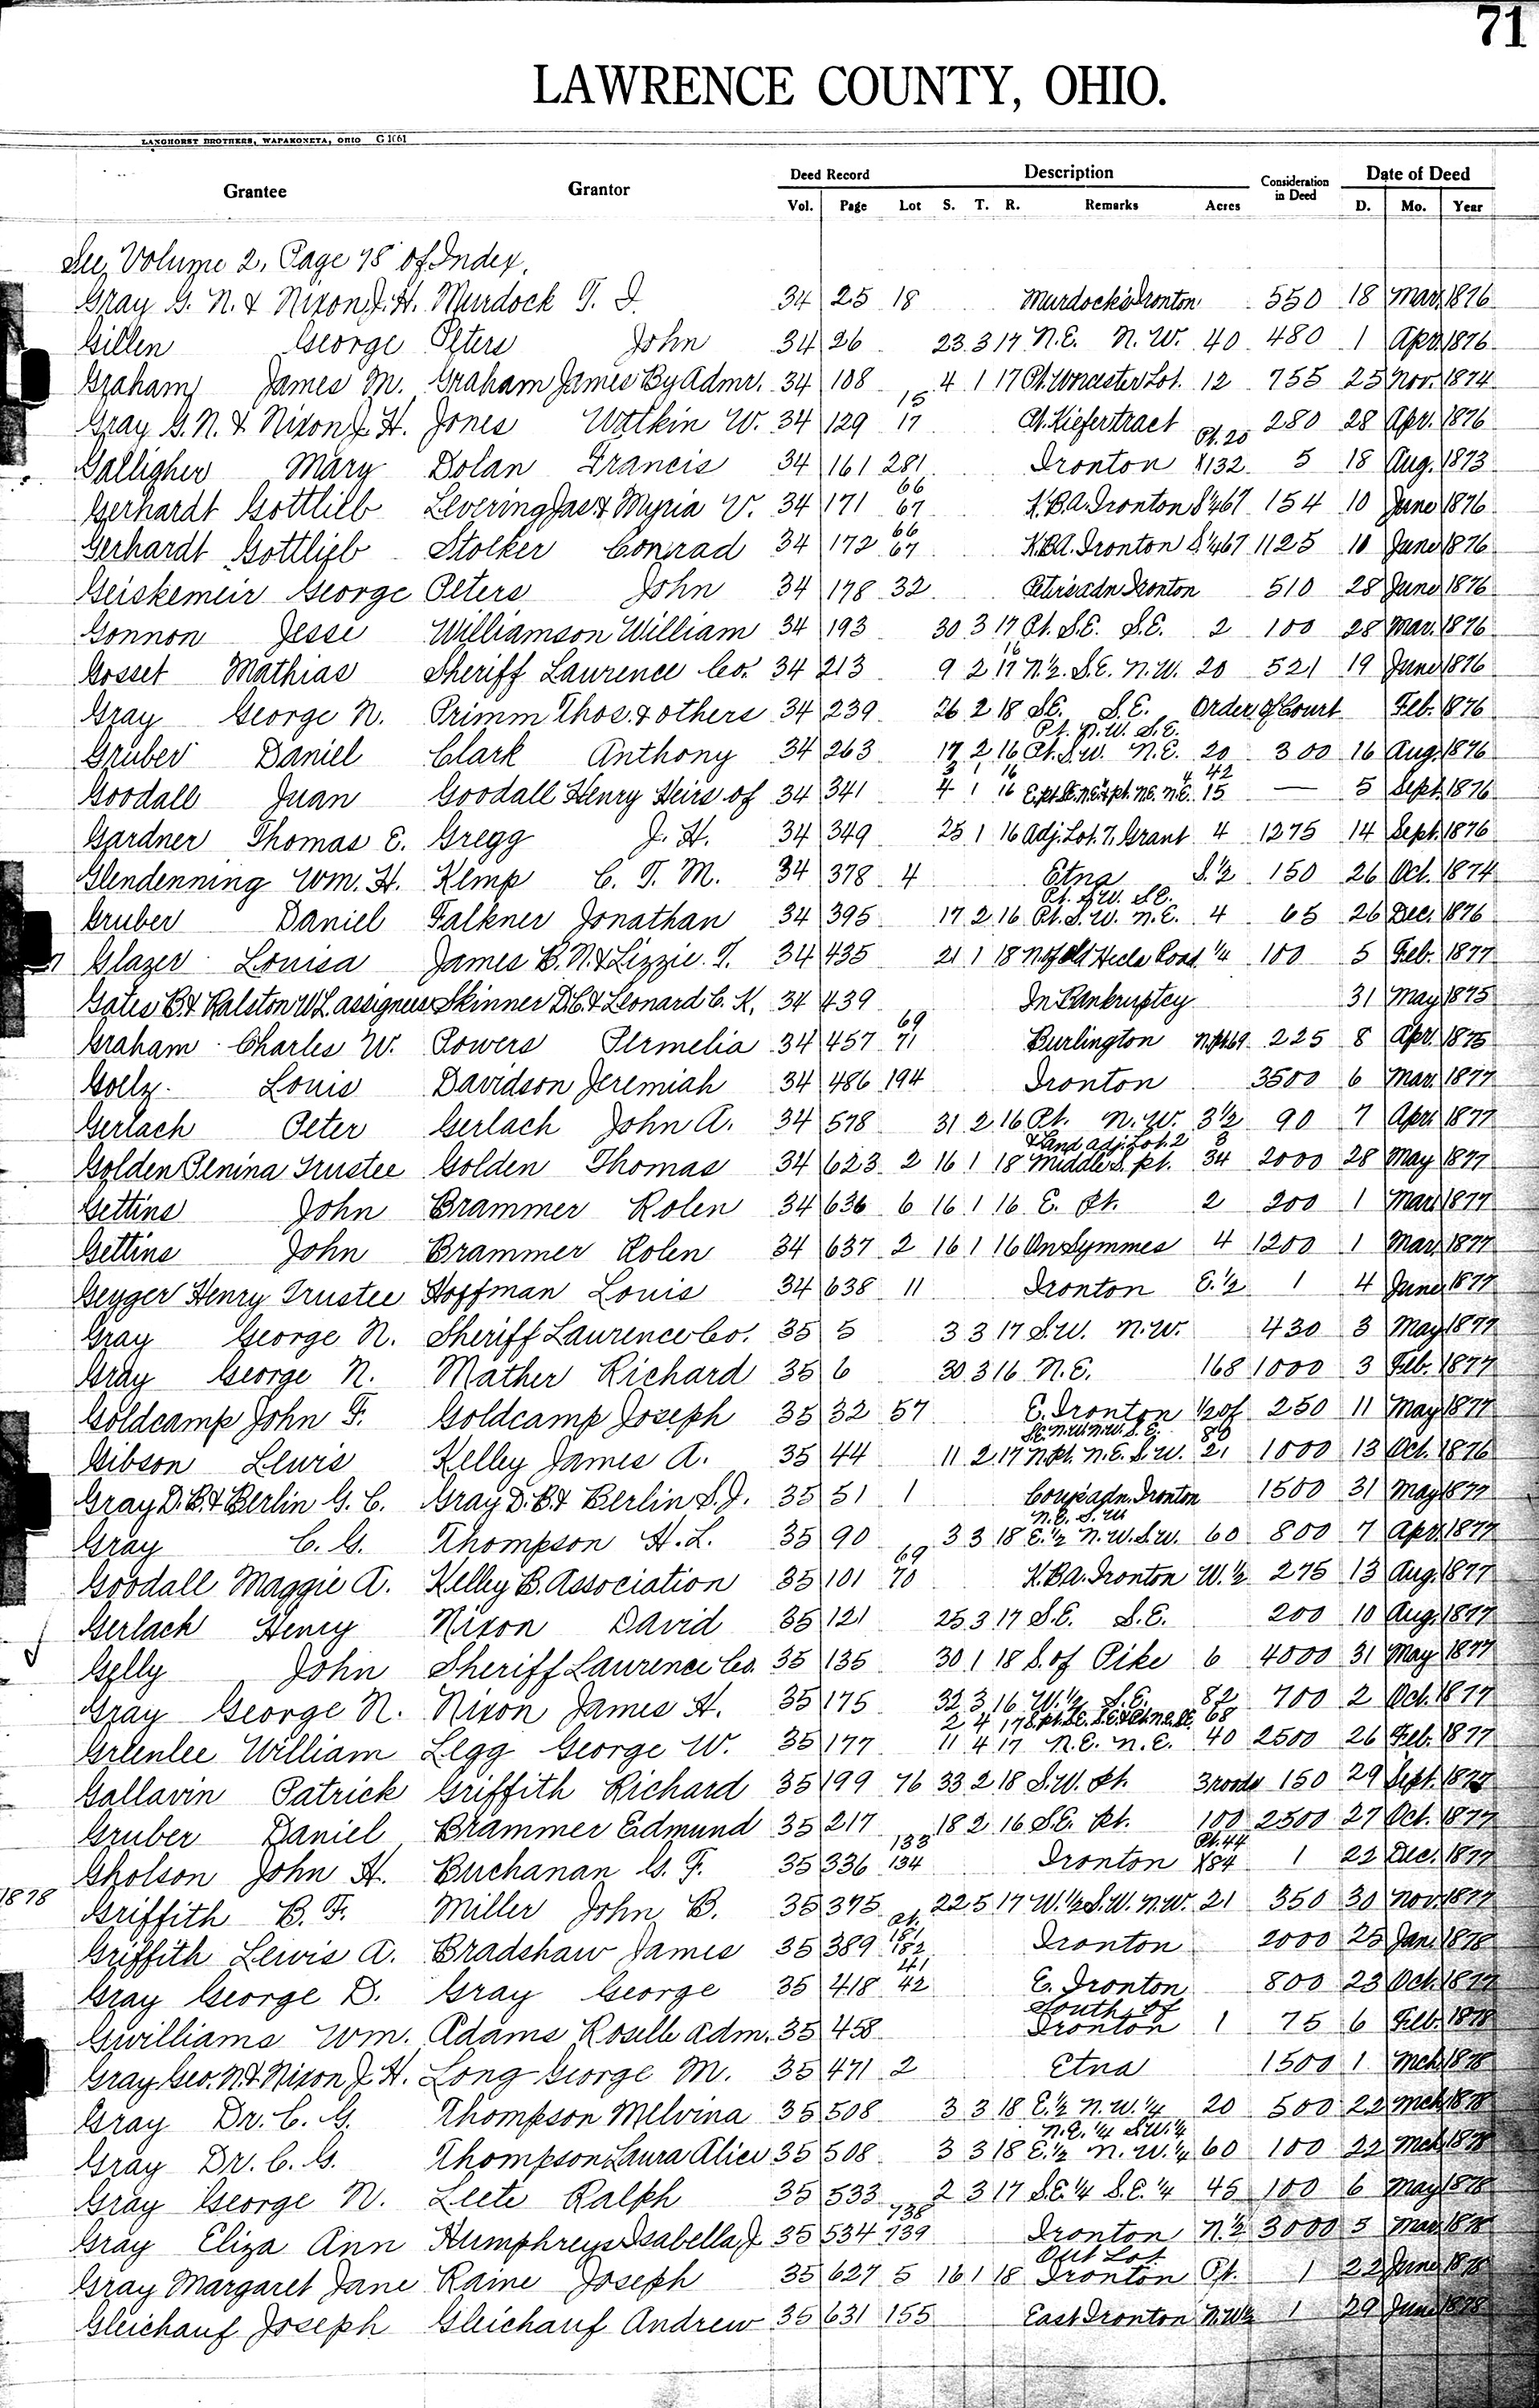 71
LAWRENCE COUNTY, OHIO.
LANGHORST BROTHERS, WAPAKONETA, OHIO G 1661
Grantee Grantor Deed Record Description Consideration in Deed Date of Deed
Vol. Page Lot S. T. R. Remarks Acres D. Mo. Year
See Volume 2, Page 78 of Index.
Gray G. N. & Nixon J. H. Murdock T. I. 34 25 18 Murdock's Ironton 550 18 Mar. 1876
Gillen George Peters John 34 26 23 3 17 N.E. N.W. 40 480 1 Apr. 1876
Graham James M. Graham James By Admr. 34 108 4 1 17 Pt. Worcester Lot. 12 755 25 Nov. 1874
Gray G. N. & Nixon J. H. Jones Watkin W. 34 129 15 17 Pt. Kiefer tract 280 28 Apr. 1876
Galligher Mary Dolan Francis 34 161 281 Ironton Pt. 20 X132 5 18 Aug. 1873
Gerhardt Gottlieb Levering Jas & Myria V. 34 171 66 67 K.B.A. Ironton S½67 154 10 June 1876
Gerhardt Gottlieb Stolker Conrad 34 172 66 67 K.B.A. Ironton S.½67 1125 10 June 1876
Geiskemeir George Peters John 34 178 32 Peters adn Ironton 510 28 June 1876
Gonnon Jesse Williamson William 34 193 30 3 17 Pt. S.E. S.E. 2 100 28 Mar. 1876
Gosset Mathias Sheriff Laurence Co. 34 213 9 2 16 17 N½. S.E. N.W. 20 521 19 June 1876
Gray George N. Primm Thos. & others 34 239 26 2 18 S.E. S.E. Order of Court Feb. 1876
Gruber Daniel Clark Anthony 34 263 17 2 16 Pt. N.W. S.E. Pt. S.W. N.E. 20 300 16 Aug. 1876
Goodall Juan Goodall Henry Heirs of 34 341 3 1 16 4 1 16 E.pt. S.E. N.E. & pt. N.E. N.E. 42 15 — 5 Sept. 1876
Gardner Thomas E. Gregg J. H. 34 349 25 1 16 Adj. Lot. 7, Grant 4 1275 14 Sept. 1876
Glendenning Wm. H. Kemp C. T. M. 34 378 4 Etna S.½ 150 26 Oct. 1874
Gruber Daniel Falkner Jonathan 34 395 17 2 16 Pt. N.W. S.E. Pt. S.W. N.E. 4 65 26 Dec. 1876
Glazer Louisa James B. N. & Lizzie T. 34 435 21 1 18 N of Old Hecla Road ¼ 100 5 Feb. 1877
Gates B. & Ralston W. L. assignees Skinner D. C. & Leonard C. K. 34 439 In Bankruptcy 31 May 1875
Graham Charles W. Powers Permelia 34 457 69 71 Burlington N.pt 69 225 8 Apr. 1875
Goelz Louis Davidson Jeremiah 34 486 194 Ironton 3500 6 Mar. 1877
Gerlach Peter Gerlach John A. 34 578 31 2 16 Pt. N.W. 3½ 90 7 Apr. 1877
Golden Penina Trustee Golden Thomas 34 623 2 16 1 18 & Land adj. Lot. 2 Middle S. pt. 8 34 2000 28 May 1877
Gettins John Brammer Rolen 34 636 6 16 1 16 E. Pt. 2 200 1 Mar. 1877
Gettins John Brammer Rolen 34 637 2 16 1 16 On Symmes 4 1200 1 Mar. 1877
Geyger Henry Trustee Hoffman Louis 34 638 11 Ironton E.½ 1 4 June 1877
Gray George N. Sheriff Laurence Co. 35 5 3 3 17 S.W. N.W. 430 3 May 1877
Gray George N. Mather Richard 35 6 30 3 16 N.E. 168 1000 3 Feb. 1877
Goldcamp John F. Goldcamp Joseph 35 32 57 E. Ironton ½ of 250 11 May 1877
Gibson Lewis Kelley James A. 35 44 11 2 17 S.E. N.W. N.W. S.E. N.pt. N.E. S.W. 80 21 1000 13 Oct. 1876
Gray D. B. & Berlin G. C. Gray D. B. & Berlin S. J. 35 51 1 Coup's adn. Ironton 1500 31 May 1877
Gray C. G. Thompson H. L. 35 90 3 3 18 N.E. S.W. E.½ N.W. S.W. 60 800 7 Apr. 1877
Goodall Maggie A. Kelley B. Association 35 101 69 70 K.B.A. Ironton W.½ 275 13 Aug. 1877
Gerlach Henry Nixon David 35 121 25 3 17 S.E. S.E. 200 10 Aug. 1877
Gelly John Sheriff Laurence Co. 35 135 30 1 18 S. of Pike 6 4000 31 May 1877
Gray George N. Nixon James H. 35 175 32 3 16 W.½ S.E. 82 700 2 Oct. 1877
Greenlee William Legg George W. 35 177 2 4 17 S.pt. S.E. S.E. & pt. N.E. S.E. 68 11 4 17 N.E. N.E. 40 2500 26 Feb. 1877
Gallavin Patrick Griffith Richard 35 199 76 33 2 18 S.W. pt. 3 roods 150 29 Sept. 1877
Gruber Daniel Brammer Edmund 35 217 18 2 16 S.E. Pt. 100 2500 27 Oct. 1877
Gholson John H. Buchanan G. F. 35 336 133 134 Ironton Pt. 44 X84 1 22 Dec. 1877
1878
Griffith B. F. Miller John B. 35 375 22 5 17 W.½ S.W. N.W. 21 350 30 Nov. 1877
Griffith Lewis A. Bradshaw James 35 389 pt. 181 182 Ironton 2000 25 Jan. 1878
Gray George D. Gray George 35 418 41 42 E. Ironton 800 23 Oct. 1877
Gwilliams Wm. Adams Roselle adm. 35 458 South of Ironton 1 75 6 Feb. 1878
Gray Geo. N. & Nixon J. H. Long George M. 35 471 2 Etna 1500 1 Mch 1878
Gray Dr. C. G. Thompson Melvina 35 508 3 3 18 E.½ N.W.¼ 20 500 22 Mch 1878
Gray Dr. C. G. Thompson Laura Alice 35 508 3 3 18 N.E.¼ S.W.¼ E.½ N.W.¼ 60 100 22 Mch 1878
Gray George N. Leete Ralph 35 533 2 3 17 S.E.¼ S.E.¼ 45 100 6 May 1878
Gray Eliza Ann Humphreys Isabella J. 35 534 738 739 Ironton N.½ 3000 5 Mar. 1878
Gray Margaret Jane Raine Joseph 35 627 5 16 1 18 Out Lot Ironton Pt. 1 22 June 1878
Gleichauf Joseph Gleichauf Andrew 35 631 155 East Ironton N.W½ 1 29 June 1878